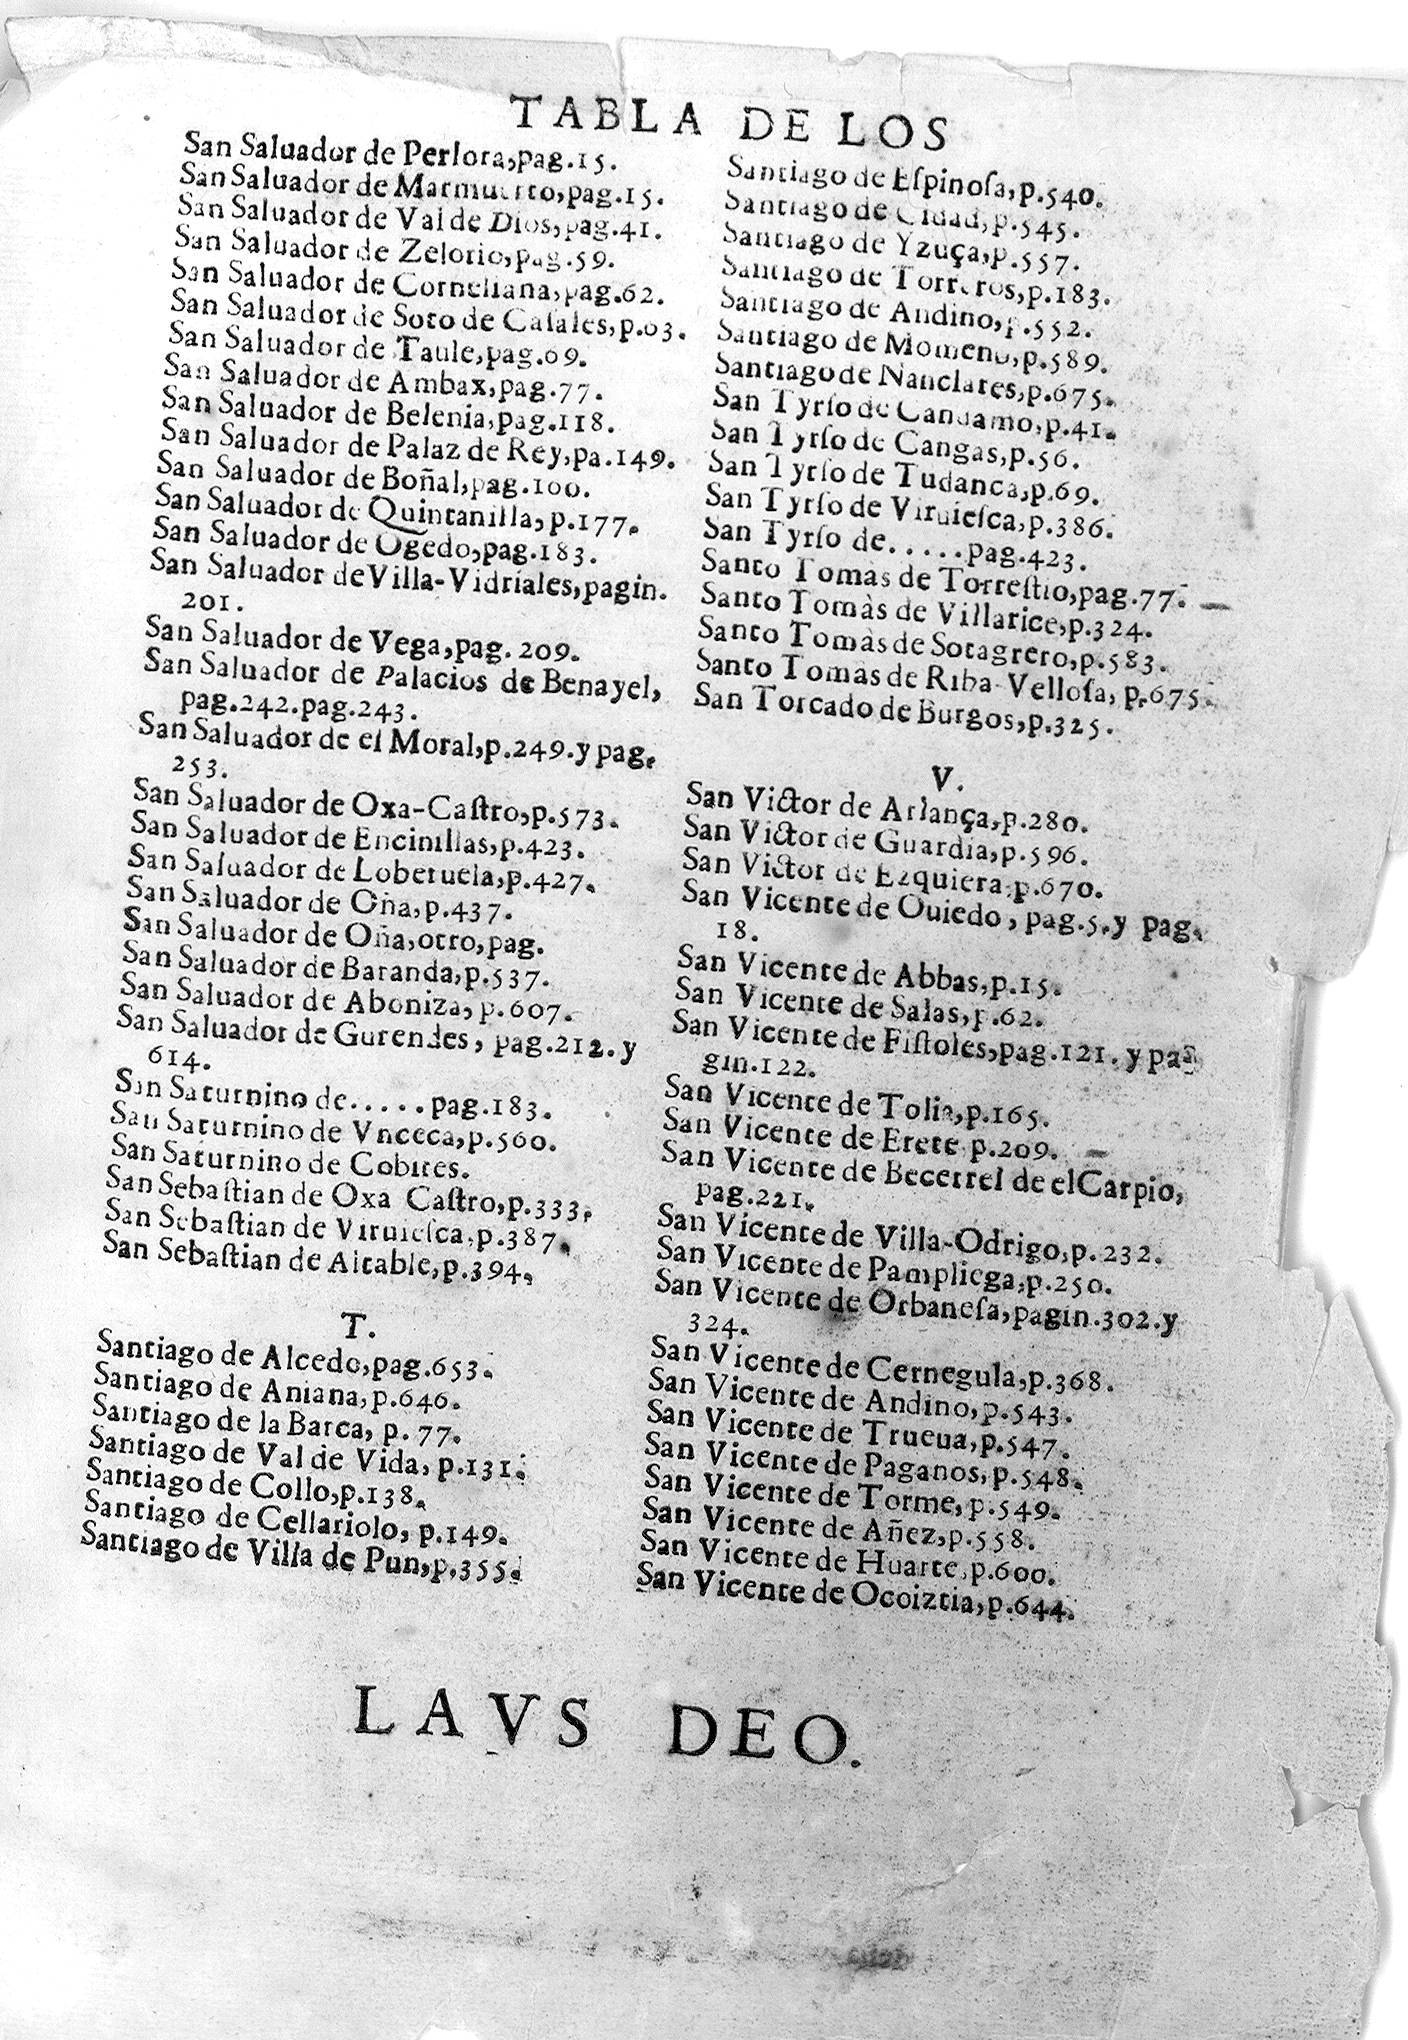 TABLA DE LOS
San Saluador de Perlora,pag.15.
San Saluador de Marmuerto,pag.15.
San Saluador de Val de Dios,pag.41.
San Saluador de Zelorio,pag.59.
San Saluador de Corneliana,pag.62.
San Saluador de Soto de Caſales,p.63.
San Saluador de Taule,pag.69.
San Saluador de Ambax,pag.77.
San Saluador de Belenia,pag.118.
San Saluador de Palaz de Rey,pa.149.
San Saluador de Boñal,pag.100.
San Saluador de Quintanilla,p.177.
San Saluador de Ogedo,pag.183.
San Saluador de Villa-Vidriales,pagin.
201.
San Saluador de Vega,pag. 209.
San Saluador de Palacios de Benayel,
pag.242.pag.243.
San Saluador de el Moral,p.249.y pag.
253.
San Saluador de Oxa-Caſtro,p.573.
San Saluador de Encinillas,p.423.
San Saluador de Loberuela,p.427.
San Saluador de Oña,p.437.
San Saluador de Oña,otro,pag.
San Saluador de Baranda,p.537.
San Saluador de Aboniza, p.607.
San Saluador de Gurendes, pag.212.y
614.
San Saturnino de.....pag.183.
San Saturnino de Vnceca,p.560.
San Saturnino de Cobites.
San Sebaſtian de Oxa Caſtro,p.333.
San Sebaſtian de Viruieſca,p.387.
San Sebaſtian de Aitable,p.394.
T.
Santiago de Alcedo,pag.653.
Santiago de Aniana,p.646.
Santiago de la Barca, p. 77.
Santiago de Val de Vida, p.131.
Santiago de Collo,p.138.
Santiago de Cellariolo, p.149.
Santiago de Villa de Pun,p.355.
Santiago de Eſpinoſa,p.540.
Santiago de Cidad,p.545.
Santiago de Yzuça,p.557.
Santiago de Torreros,p.183.
Santiago de Andino,p.552.
Santiago de Momeno,p.589.
Santiago de Nanclares,p.675.
San Tyrſo de Candamo,p.41.
San Tyrſo de Cangas,p.56.
San Tyrſo de Tudanca,p.69.
San Tyrſo de Viruieſca,p.386.
San Tyrſo de.....pag.423.
Santo Tomàs de Torreſtio,pag.77.
Santo Tomàs de Villarice,p.324.
Santo Tomàs de Sotagrero,p.583.
Santo Tomàs de Riba-Velloſa, p.675.
San Torcado de Burgos,p.325.
V.
San Victor de Arlança,p.280.
San Victor de Guardia,p.596.
San Victor de Ezquiera,p.670.
San Vicente de Ouiedo, pag.5.y pag.
18.
San Vicente de Abbas,p.15.
San Vicente de Salas,p.62.
San Vicente de Fiſtoles,pag.121.y pa-
gin.122.
San Vicente de Tolia,p.165.
San Vicente de Erete p.209.
San Vicente de Becerrel de el Carpio,
pag.221.
San Vicente de Villa-Odrigo,p.232.
San Vicente de Pampliega,p.250.
San Vicente de Orbaneſa,pagin.302.y
324.
San Vicente de Cernegula,p.368.
San Vicente de Andino,p.543.
San Vicente de Trueua,p.547.
San Vicente de Paganos,p.548.
San Vicente de Torme,p.549.
San Vicente de Añez,p.558.
San Vicente de Huarte,p.600.
San Vicente de Ocoiztia,p.644.
LAVS DEO.